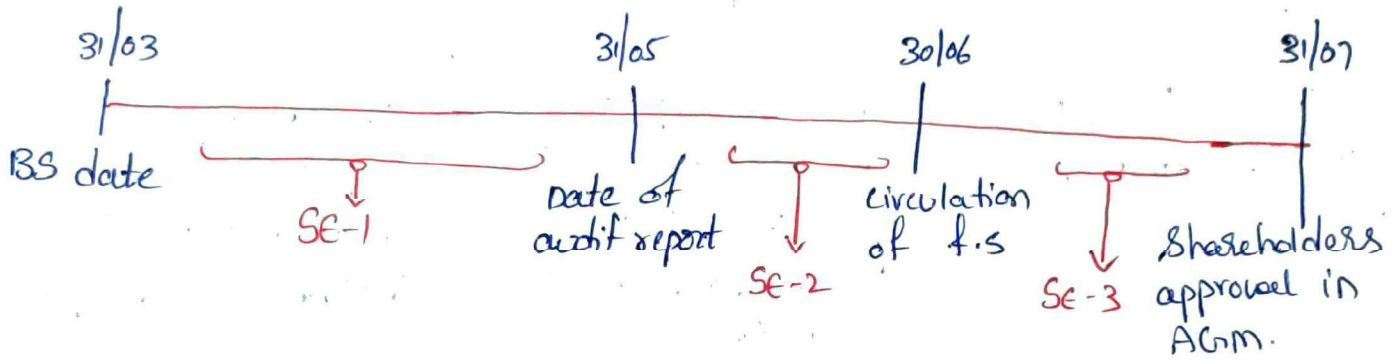 31/03
31/05
30/06
31/07
BS date
SE-1
Date of
audit report
SE-2
circulation
of f.s
SE-3
Shareholders
approval in
AGM.